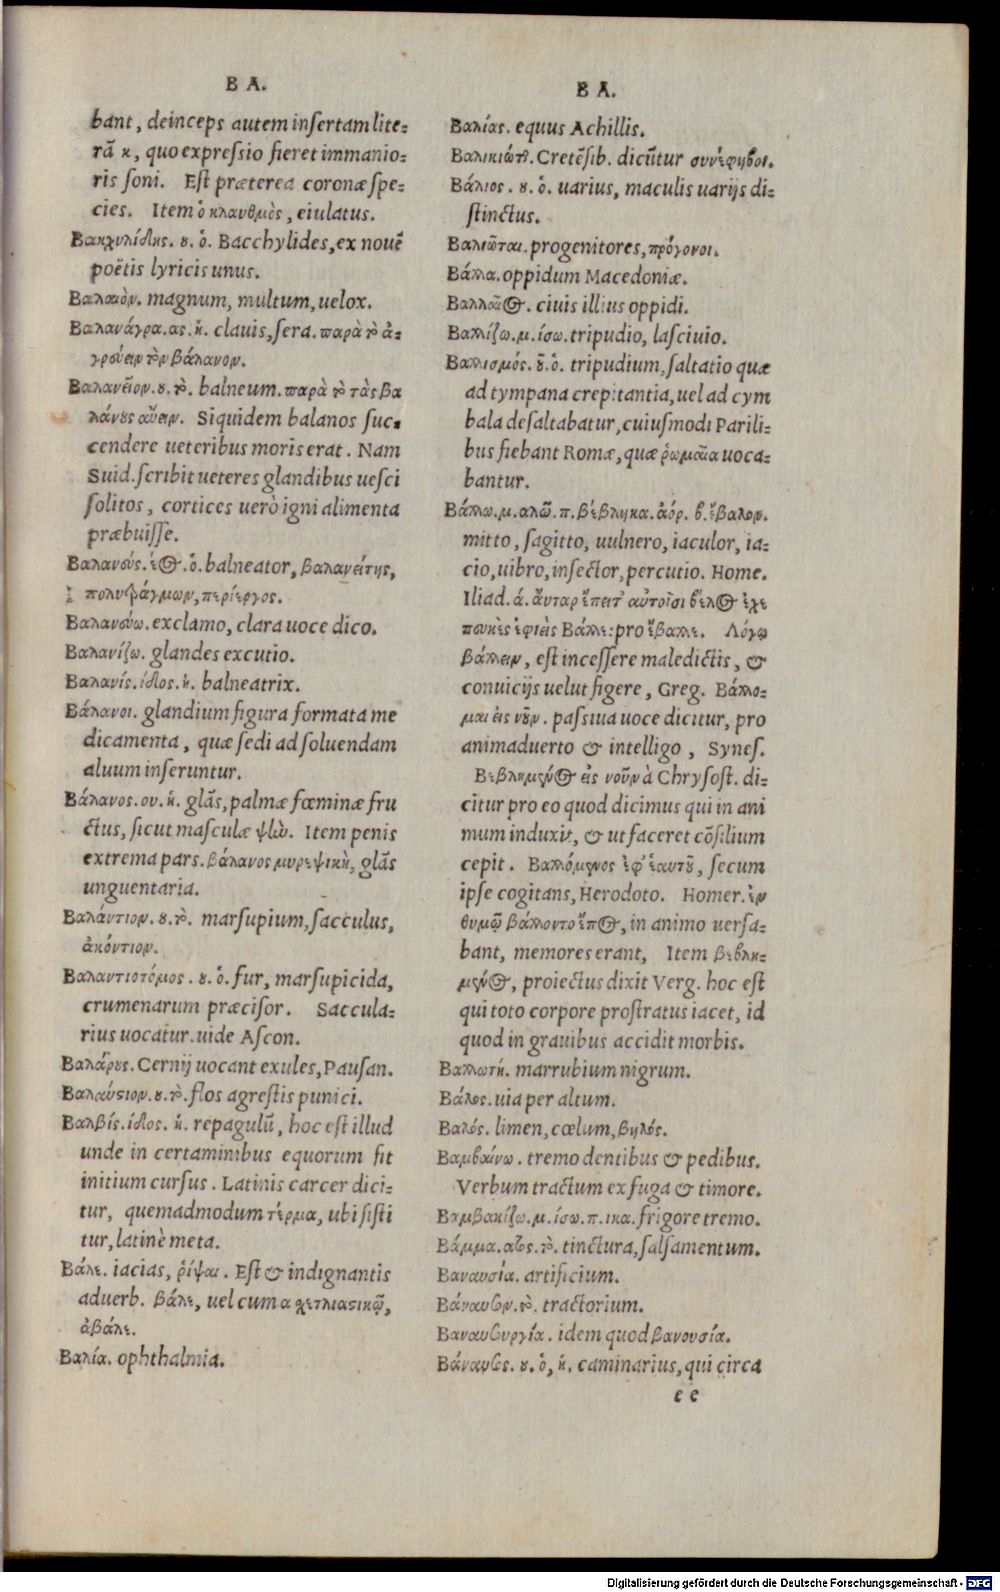 B A.
bant, deinceps autem insertam lite=
rã κ, quo expressio fieret immanio=
ris soni. Est præterea coronæ spe=
cies. Item ὁ κλαυθμὸς, eiulatus.
Βακχυλίδης. ȣ. ὁ. Bacchylides, ex nouẽ
poëtis lyricis unus.
Βαλαιὸν. magnum, multum, uelox.
Βαλανάγρα. ας. ἡ. clauis, sera. παρὰ τὸ ἀ-
γρεύειν τὸν βάλανον.
Βαλανεῖον. ȣ. τὸ. balneum. παρὰ τὸ τὰς βα
λάνȣς αὔειν. Siquidem balanos suc=
cendere ueteribus moris erat. Nam
Suid. scribit ueteres glandibus uesci
solitos, cortices uerò igni alimenta
præbuisse.
Βαλανεύς. έος. ὁ. balneator, βαλανείτης,
πολυπράγμων, περίεργος.
Βαλανεύω. exclamo, clara uoce dico.
Βαλανίζω. glandes excutio.
Βαλανίς. ίδος. ἡ. balneatrix.
Βάλανοι. glandium figura formata me
dicamenta, quæ sedi ad soluendam
aluum inseruntur.
Βάλανος. ου. ἡ. glãs, palmæ fœminæ fru
ctus, sicut masculæ ψὼ. Item penis
extrema pars. βάλανος μυρεψικὴ, glãs
unguentaria.
Βαλάντιον. ȣ. τὸ. marsupium, sacculus,
ἀκόντιον.
Βαλαντιοτόμος. ȣ. ὁ. fur, marsupicida,
crumenarum præcisor. Saccula=
rius uocatur. uide Ascon.
Βαλάρȣς. Cernij uocant exules, Pausan.
Βαλαύστιον. ȣ. τὸ. flos agrestis punici.
Βαλβίς. ίδος. ἡ. repagulũ, hoc est illud
unde in certaminibus equorum fit
initium cursus. Latinis carcer dici=
tur, quemadmodum τέρμα, ubi sisti
tur, latinè meta.
Βάλε. iacias, ῥίψαι. Est & indignantis
aduerb. βάλε, uel cum α χετλιαστικῷ,
ἀβάλε.
Βαλία. ophthalmia.
B A.
Βαλίας. equus Achillis.
Βαλικιώτ. Cretẽsib. dicũtur συνέφηβοι.
Βάλιος. ȣ. ὁ. uarius, maculis uarijs di=
stinctus.
Βαλιῶται. progenitores, πρόγονοι.
Βάλλα. oppidum Macedoniæ.
Βαλλαῖος. ciuis illius oppidi.
Βαλλίζω. μ. ίσω. tripudio, lasciuio.
Βαλλισμός. ȣ͂. ὁ. tripudium, saltatio quæ
ad tympana crepitantia, uel ad cym
bala desaltabatur, cuiusmodi Parili=
bus fiebant Romæ, quæ ῥωμαῖα uoca=
bantur.
Βάλλω. μ. αλῶ. π. βέβληκα. ἀόρ. β. ἔβαλον.
mitto, sagitto, uulnero, iaculor, ia=
cio, uibro, insector, percutio. Home.
Iliad. ά. ἄυταρ ἔπειτ᾽ αὐτοῖσι βέλος ἐχε
πευκὲς ἐφιεὶς Βάλλε: pro ἔβαλλε. Λόγῳ
βάλλειν, est incessere maledictis, &
conuicijs uelut figere, Greg. Βάλλο=
μαι εἰς νȣ͂ν. passiua uoce dicitur, pro
animaduerto & intelligo, Synes.
Βεβλημένος εἰς νοῦν à Chrysost. di=
citur pro eo quod dicimus qui in ani
mum induxit, & ut faceret cõsilium
cepit. Βαλλόμενος ἐφ᾽ ἑαυτȣ͂, secum
ipse cogitans, Herodoto. Homer. ἐν
θυμῷ βάλλοντο ἔπος, in animo uersa=
bant, memores erant, Item βεβλη=
μένος, proiectus dixit Verg. hoc est
qui toto corpore prostratus iacet, id
quod in grauibus accidit morbis.
Βαλλωτή. marrubium nigrum.
Βάλος. uia per altum.
Βαλός. limen, cœlum, βηλός.
Βαμβαίνω. tremo dentibus & pedibus.
Verbum tractum ex fuga & timore.
Βαμβακίζω. μ. ίσω. π. ικα. frigore tremo.
Βάμμα. ατος. τὸ. tinctura, salsamentum.
Βαναυσία. artificium.
Βάναυσον. τὸ. tractorium.
Βαναυσουργία. idem quod βανουσία.
Βάναυσος. ȣ. ὁ, ἡ. caminarius, qui circa
e e
Digitalisierung gefördert durch die Deutsche Forschungsgemeinschaft - DFG